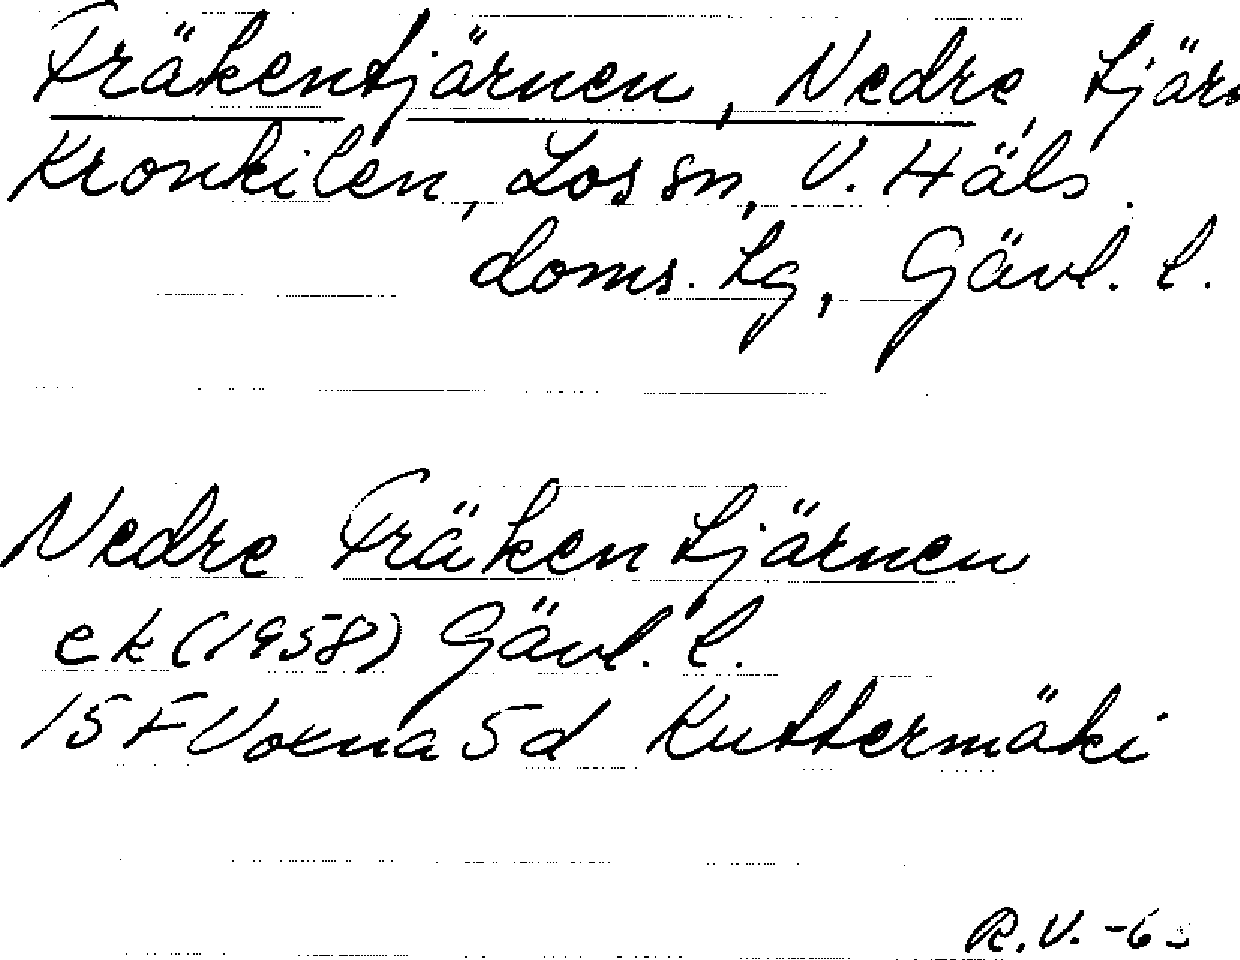 Fräkentjärnen, Nedre, tjärn
Kronkilen, Los sn, V. Häls.
doms. lg, Gävl. l.
Nedre Fräkentjärnen
ek (1958) Gävl. l.
15 F Voxna 5d Kuttermäki
R.V. -6